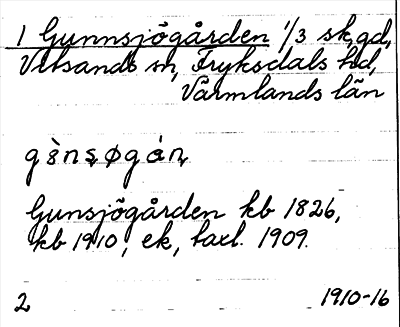 1 Gunnsjögården 1/3 sk, gd,
Vitsands sn, Fryksdals hd,
Värmlands län
Gunsjögården kb 1826,
kb 1910, ek, taxl. 1909.
2 1910-16